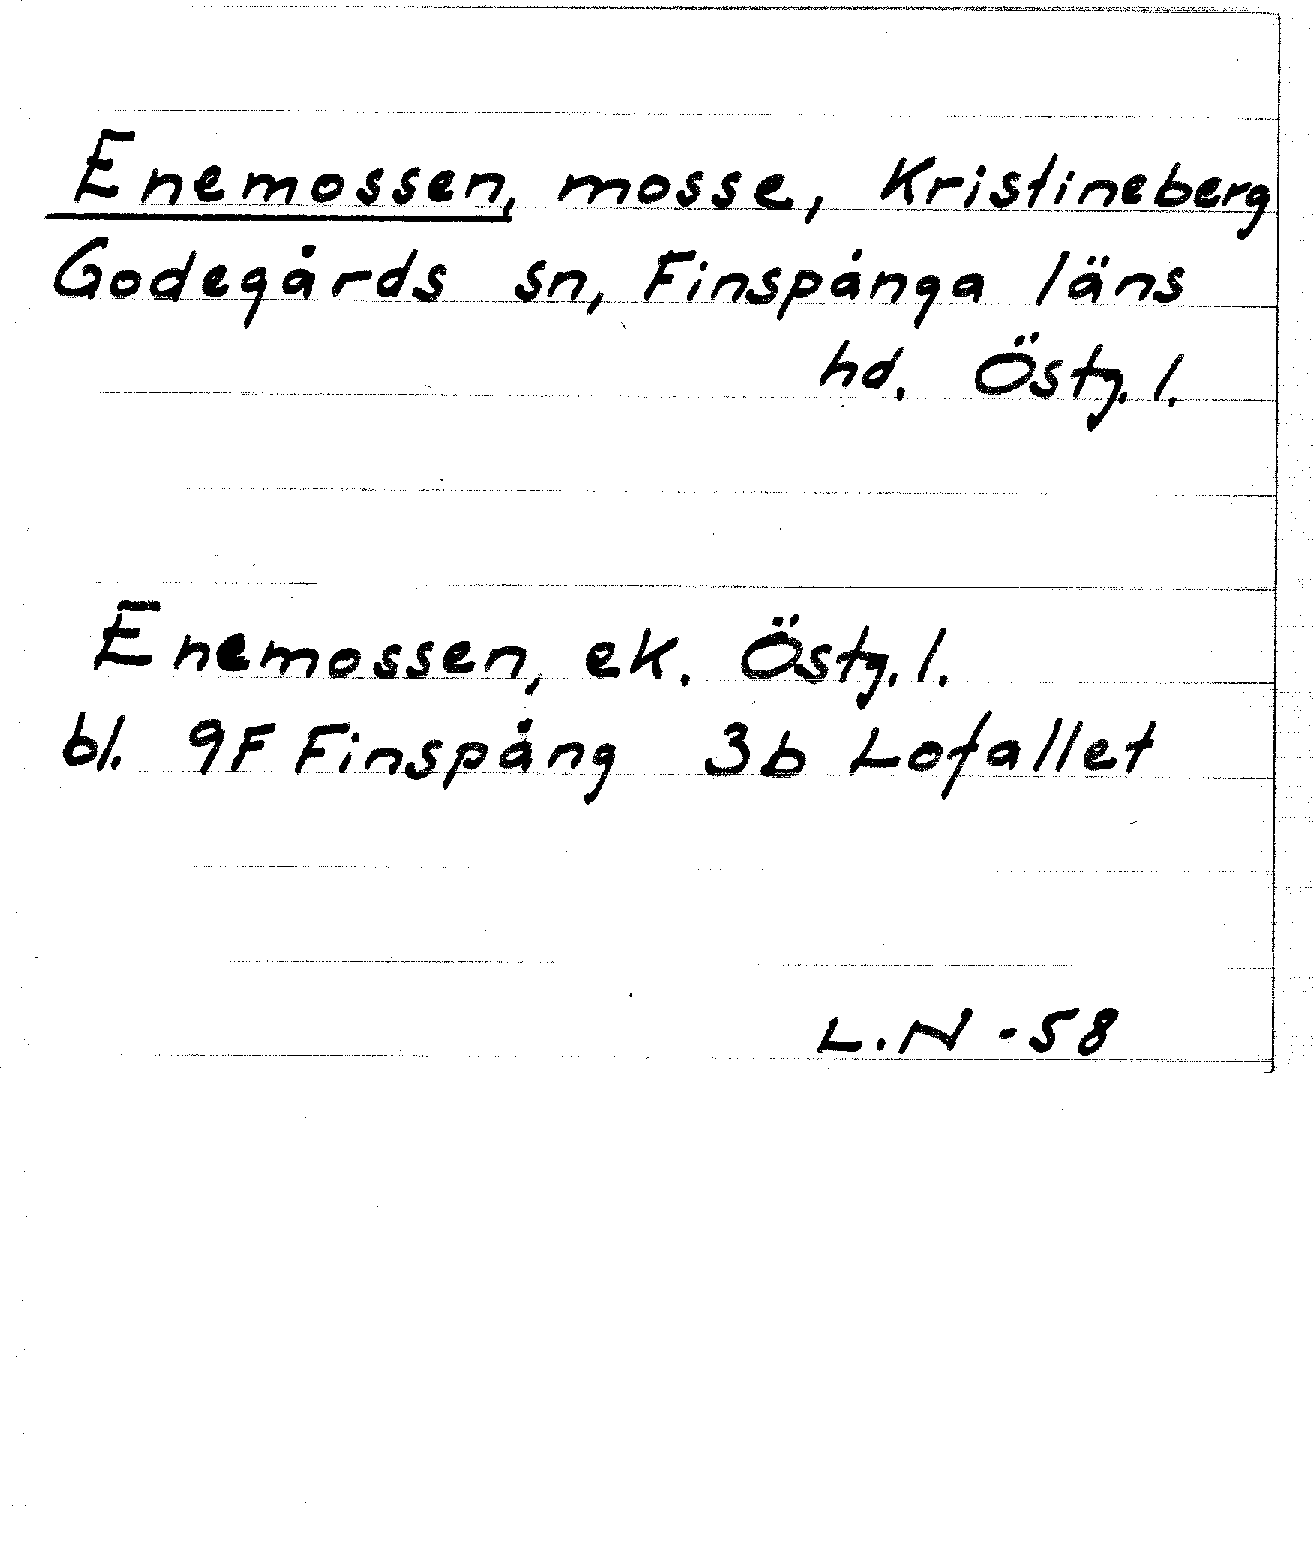 Enemossen, mosse, Kristineberg
Godegårds sn, Finspånga läns
hd. Östg. l.
Enemossen, ek. Östg. l.
bl. 9F Finspång 3b Lofallet
L.N -58